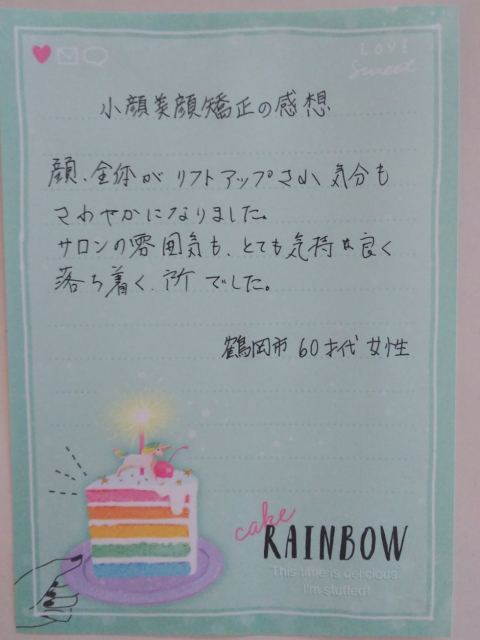 LOVE
Sweet
小顔美顔矯正の感想
顔、全体がリフトアップされ、気分も
さわやかになりました。
サロンの雰囲気も、とても気持な良く
落ち着く、所でした。
鶴岡市 60才代 女性
cake
RAINBOW
This time is delicious.
I'm stuffed!